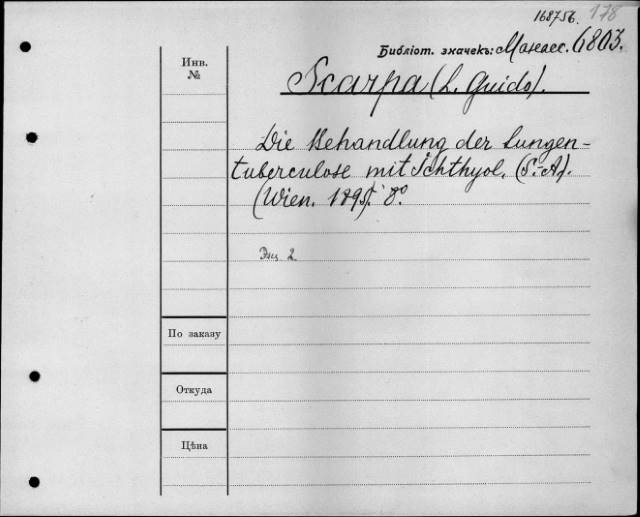 168756. 178
Библіот. значекъ: Манасс. 6803.
Инв.
№
Scarpa (L. Guido).
Die Behandlung der Lungen-
tuberculose mit Ichthyol. (S.-A).
(Wien. 1895). 8°.
Экз 2
По заказу
Откуда
Цѣна